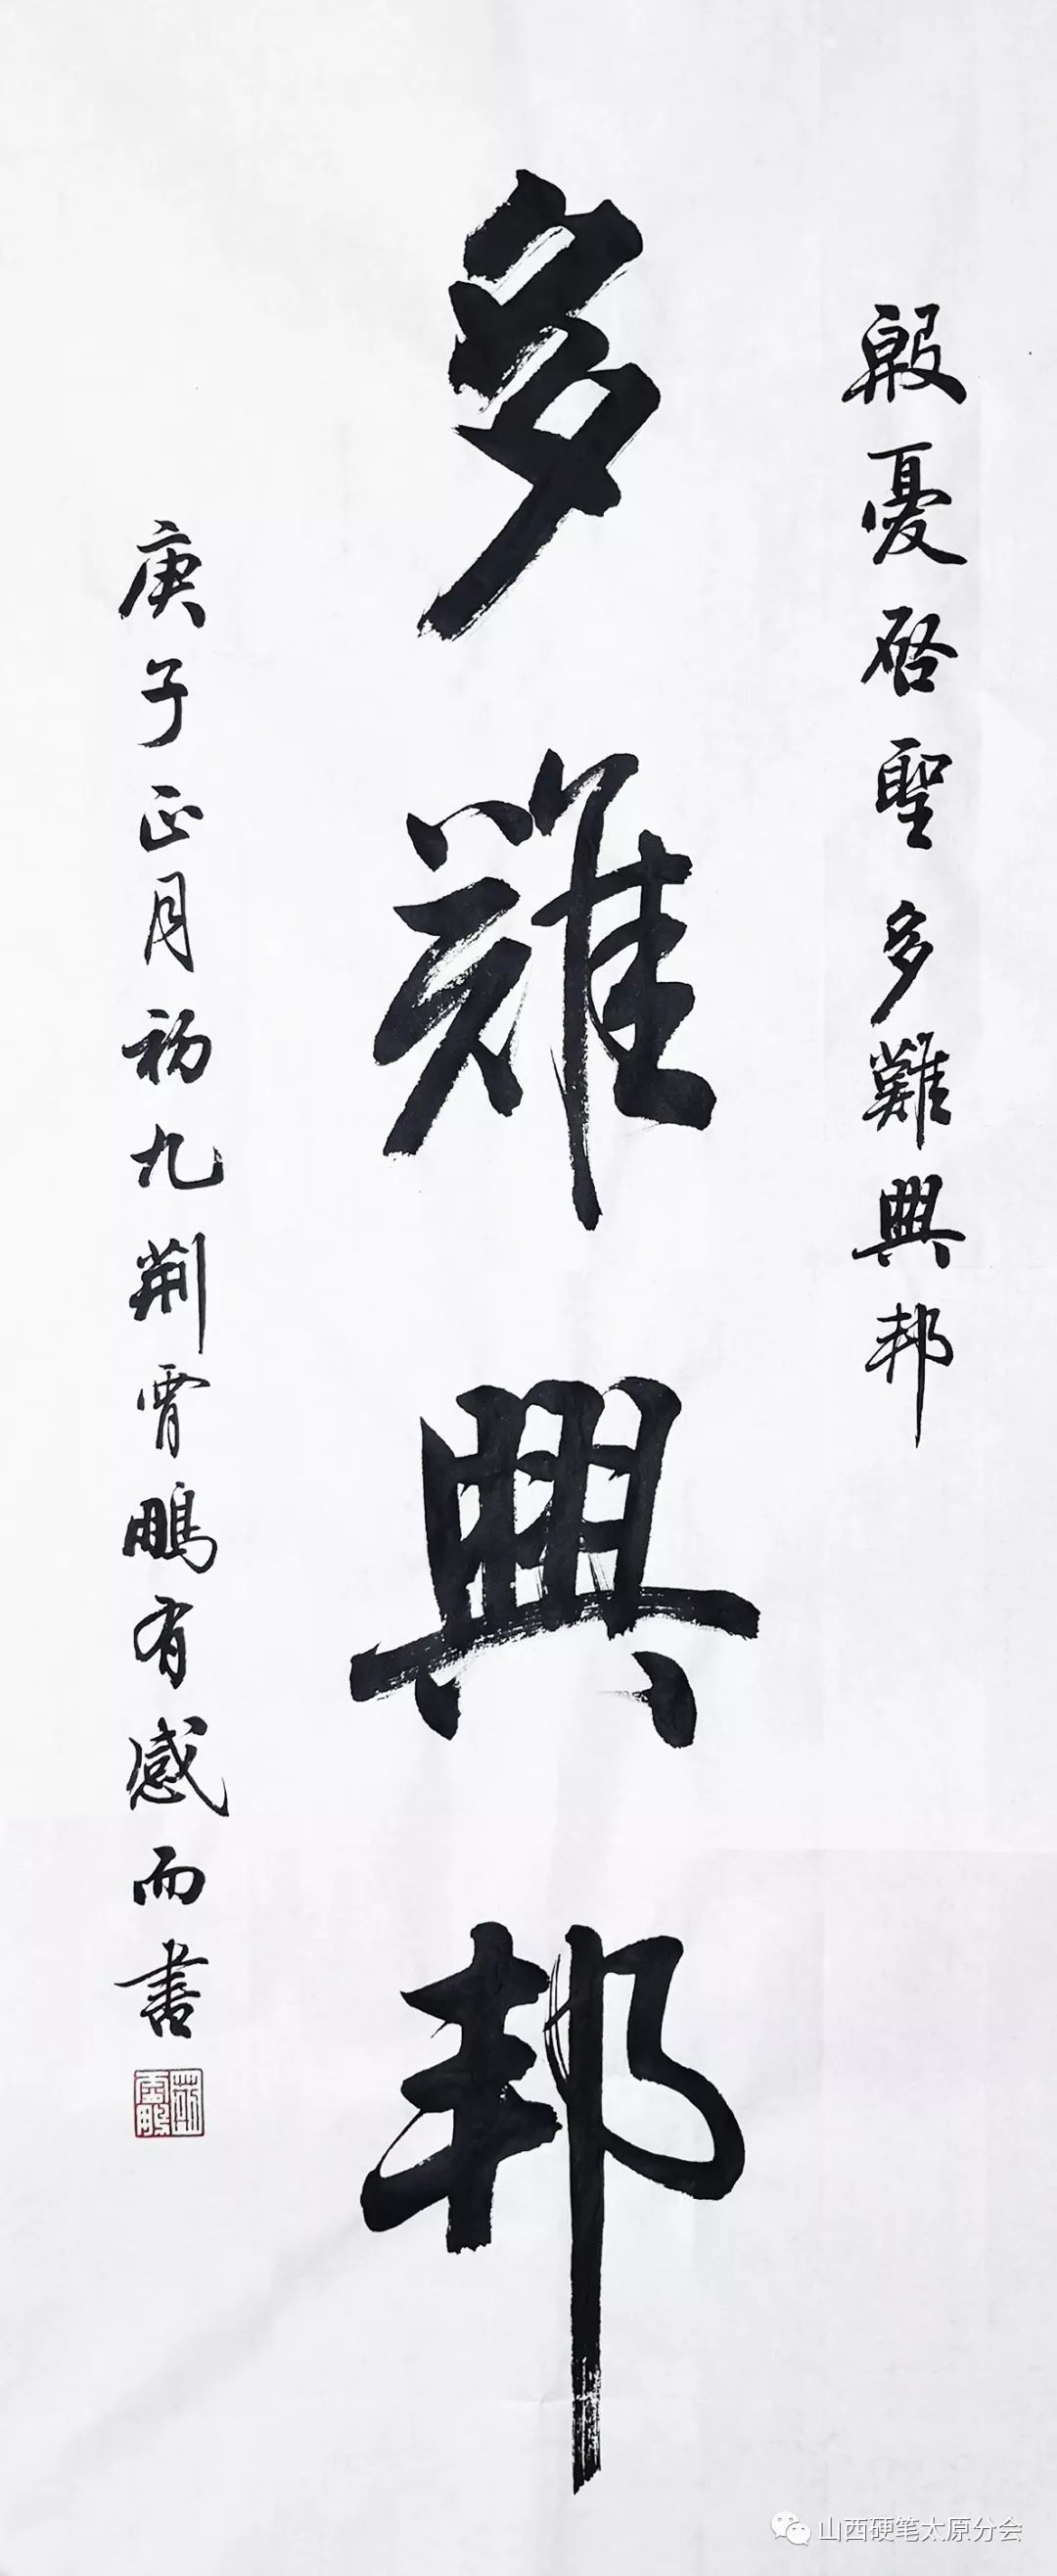 殷憂啓聖多難興邦
多難興邦
庚子正月初九荆霄鵬有感而書
山西硬笔太原分会